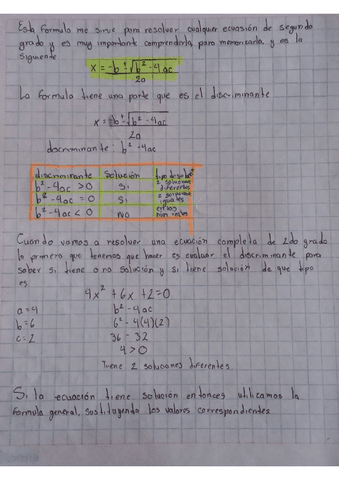 Esta formula me sirve para resolver cualquier ecuación de segundo
grado y es muy importante comprenderla para memorizarla, y es la
siguiente
x = -b ± √b² - 4ac
2a
La formula tiene una parte que es el discriminante
x = -b ± √b² - 4ac
2a
discriminante: b² - 4ac
discriminante solución
b² - 4ac > 0 si 2 soluciones diferentes
b² - 4ac = 0 si 2 soluciones iguales
b² - 4ac < 0 no
Cuando vamos a resolver una ecuación completa de 2do grado
lo primero que tenemos que hacer es evaluar el discriminante para
saber si tiene o no solución y si tiene solución de que tipo
es
4x² + 6x + 2 = 0
a = 4 b² - 4ac
b = 6 6² - 4(4)(2)
c = 2 36 - 32
4 > 0
Tiene 2 soluciones diferentes
Si la ecuación tiene solución entonces utilizamos la
formula general, sustituyendo los valores correspondientes